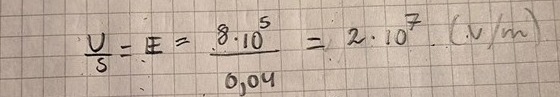 U/S = E = 8·10⁵ / 0,04 = 2·10⁷ (V/m)